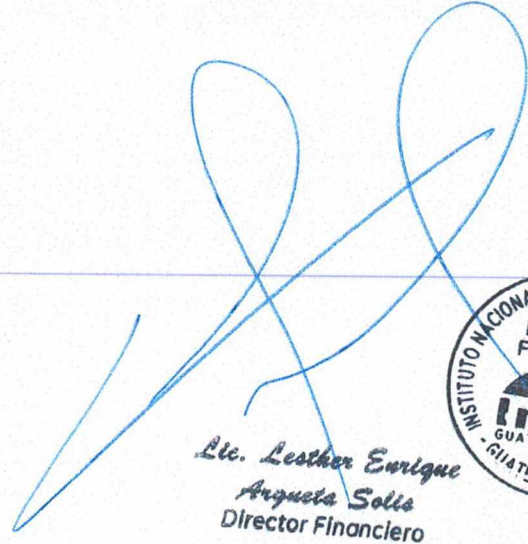 Lic. Lesther Enrique
Argueta Solis
Director Financiero
INSTITUTO NACIONA
GUA